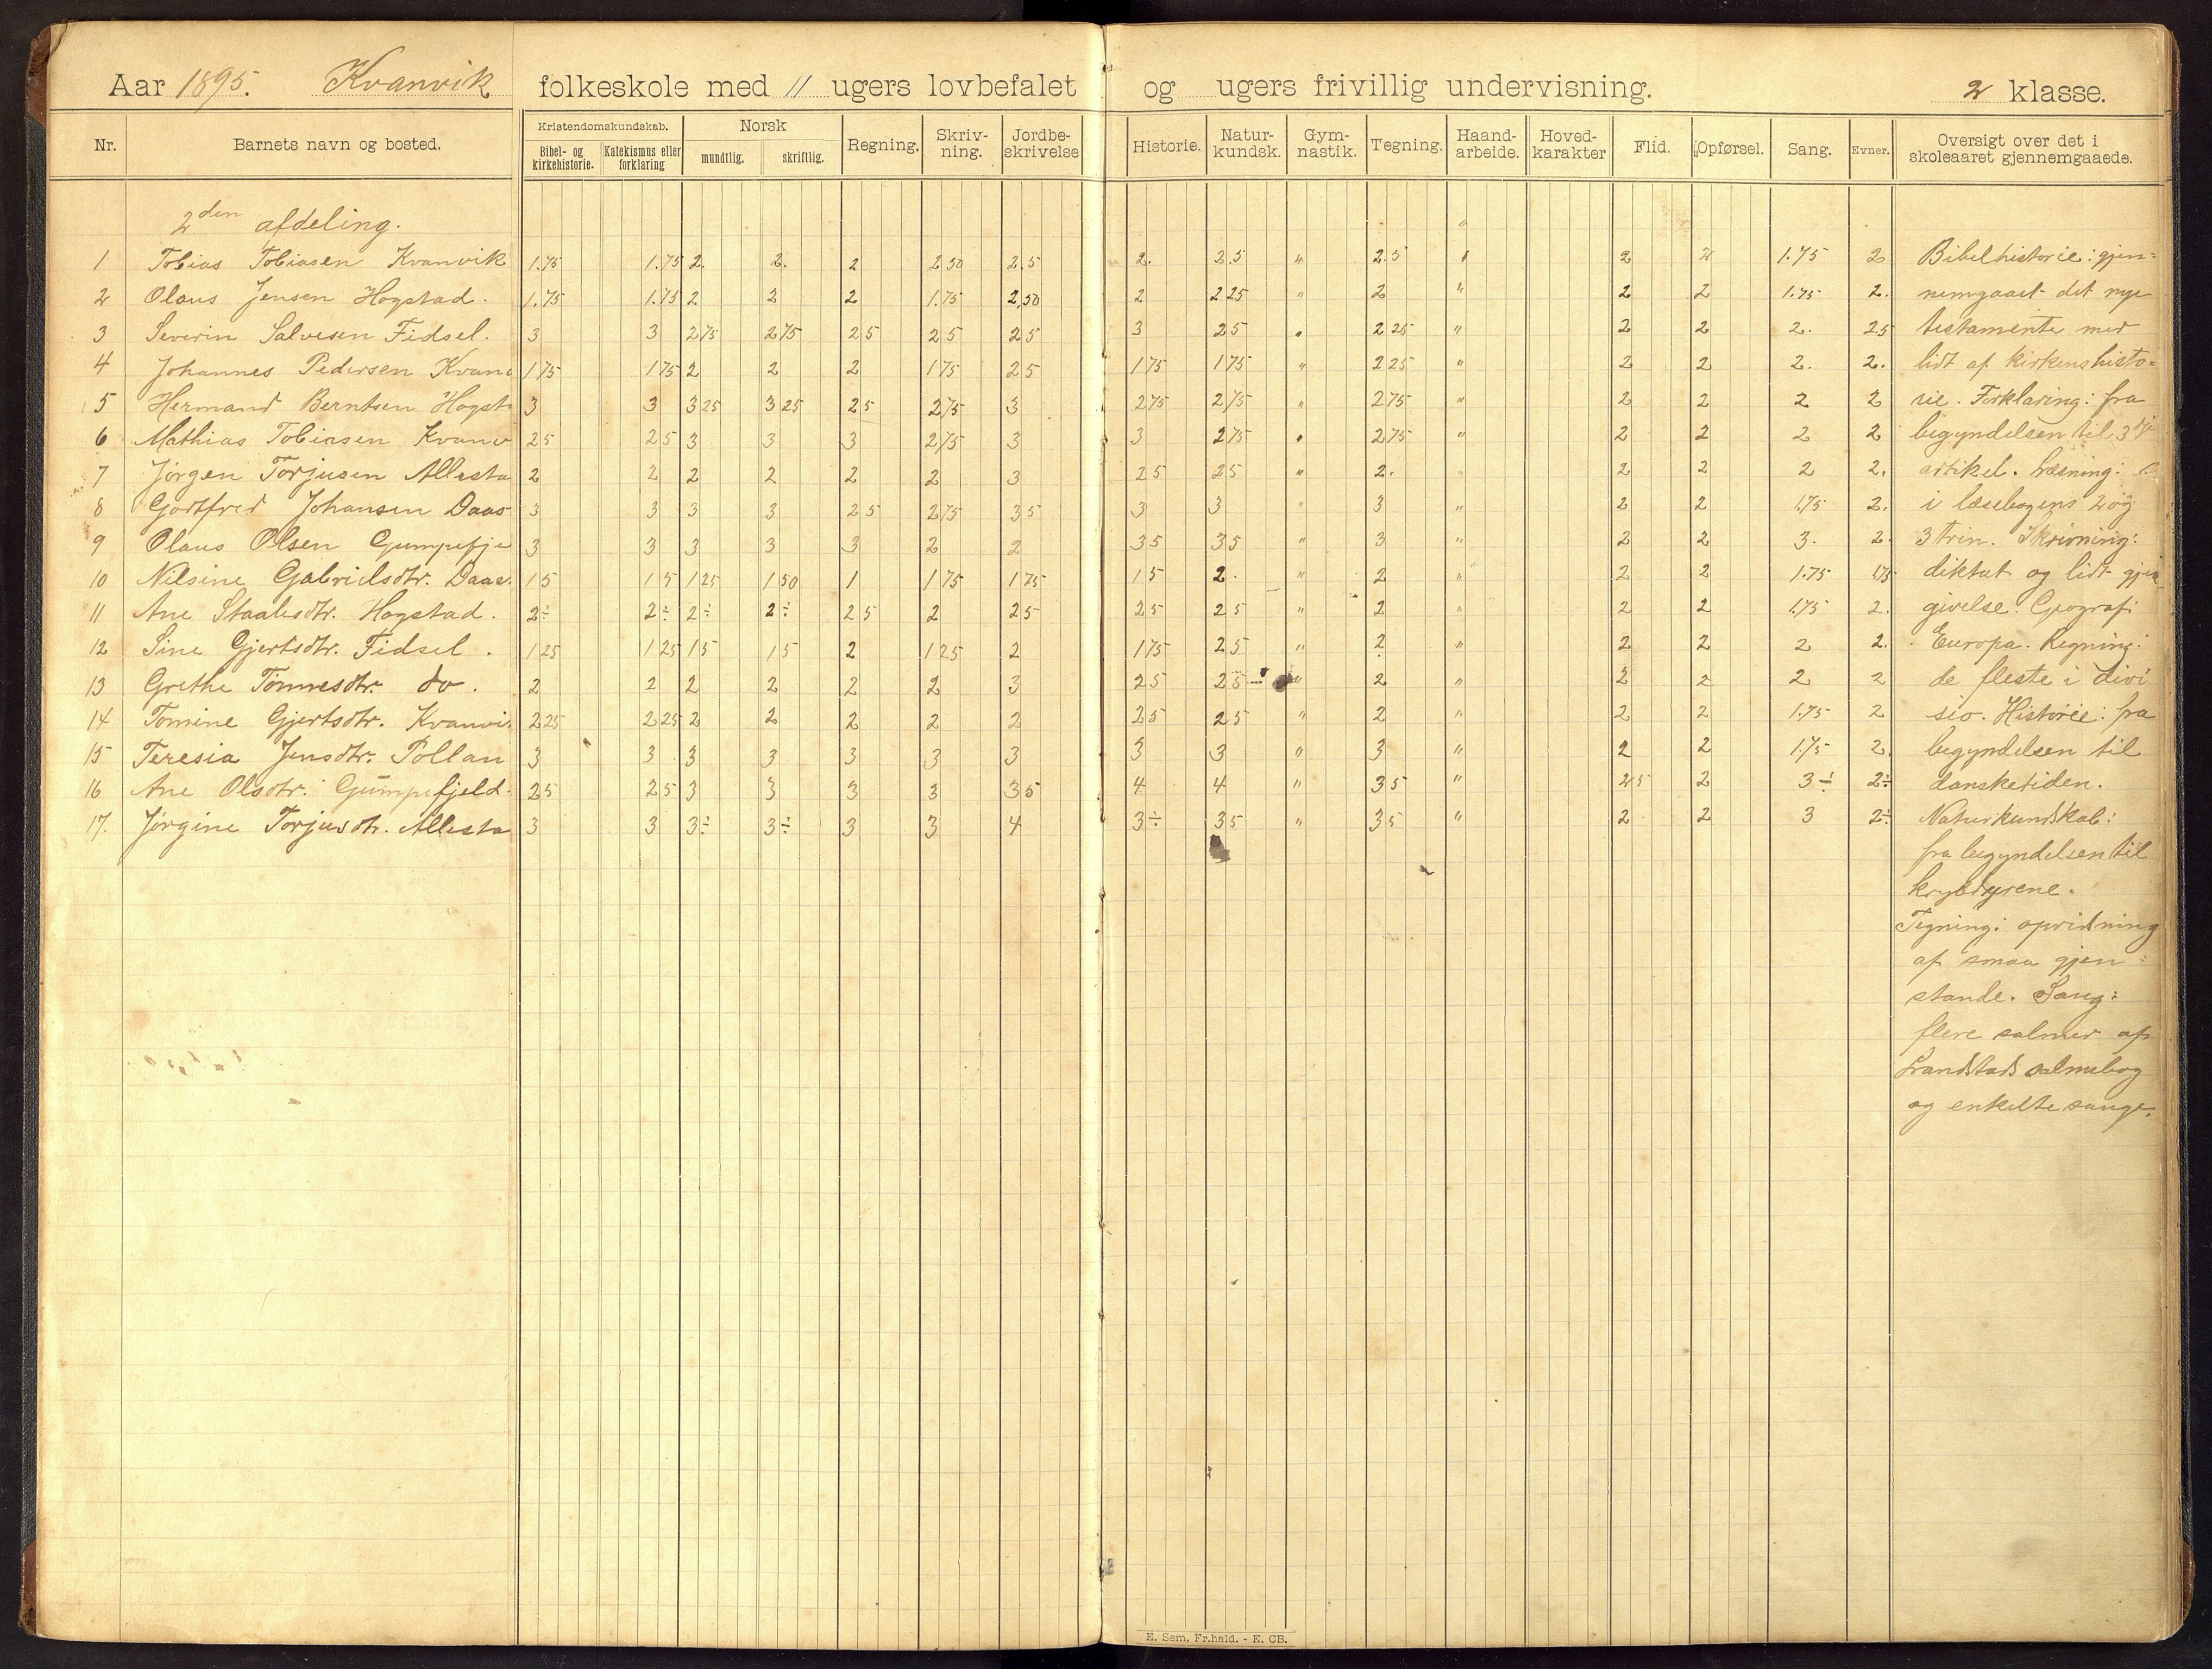 Aar 1895. Kvanvik folkeskole med 11 ugers lovbefalet og ugers frivillig undervisning. 2 klasse.
Nr. Barnets navn og bosted. Kristendomskundskab. Norsk Regning. Skriv-ning. Jordbe-skrivelse Historie. Natur-kundsk. Gym-nastik. Tegning. Haand-arbeide. Hoved-karakter Flid. Opførsel. Sang. Evner. Oversigt over det i skoleaaret gjennemgaaede.
Bibel- og kirkehistorie. Katekismus eller forklaring mundtlig. skriftlig.
2den afdeling. "
1 Tobias Tobiasen Kvanvik 1.75 1.75 2. 2. 2 2 50 2,5 2. 2.5 " 2.5 " 2 2 1.75 2 Bibelhistorie: gjen=
2 Olaus Jensen Hogstad. 1.75 1.75 2 2 2 1.75 2,50 2 2 25 " 2 " 2 2 1.75 2. nemgaaet det nye
3 Severin Salvesen Fidsel. 3 3 2 75 2 75 2 5 2 5 2 5 3 2 5 " 2 25 " 2 2 2. 2.5 testamente med
4 Johannes Pedersen Kvanv 1 75 1 75 2 2 2 1 75 2 5 1 75 1 75 " 2 25 " 2 2 2. 2. lidt af kirkens histo=
5 Hermand Berntsen Hogst 3 3 3 25 3 25 2 5 2 75 3 2 75 2 75 " 2 75 " 2 2 2 2 rie. Forklaring: fra
6 Mathias Tobiasen Kvanv 2 5 2 5 3 3 3 2 75 3 3 2 75 " 2 75 " 2 2 2 2 begyndelsen til 3dje
7 Jørgen Torjusen Allesta 2 2 2 2 2 2 3 2 5 2 5 " 2. " 2 2 2 2. artikel. Læsning:
8 Godtfred Johansen Daas 3 3 3 3 2 5 2 75 3 5 3 3 " 3 " 2 2 1.75 2. i læsebogens 2 og
9 Olaus Olsen Gumpefje 3 3 3 3 3 2 2 3 5 3 5 " 3 " 2 2 3. 2. 3 trin. Skrivning:
10 Nilsine Gabrielsdtr. Daas. 1 5 1 5 1 25 1 50 1 1 75 1 75 1 5 2. " 2 " 2 2 1.75 1.75 diktat og lidt gjen
11 Ane Staalesdtr. Hogstad. 2÷ 2÷ 2÷ 2÷ 2 5 2 2 5 2 5 2 5 " 2 " 2 2 1.75 2. givelse. Geografi
12 Sine Gjertsdtr. Fidsel. 1 25 1 25 1 5 1 5 2 1 25 2 1 75 2 5 " 2 " 2 2 2 2. Europa. Regning:
13 Grethe Tønnesdtr. do. 2 2 2 2 2 2 3 2 5 2 5 " 2 " 2 2 2 2 de fleste i divi
14 Tomine Gjertsdtr. Kvanvi. 2 25 2 25 2 2 2 2 2 2 5 2 5 " 2 " 2 2 1.75 2 sio. Historie: fra
15 Teresia Jensdtr. Pollan 3 3 3 3 3 3 3 3 3 " 3 " 2 2 1.75 2. begyndelsen til
16 Ane Olsdtr. Gumpefjeld. 2 5 2 5 3 3 3 3 3 5 4 4 " 3 5 " 2 5 2 3÷ 2÷ dansketiden.
17. Jørgine Torjusdtr. Allesta 3 3 3÷ 3÷ 3 3 4 3÷ 3 5 " 3 5 " 2 2 3 2÷ Naturkundskab:
fra begyndelsen til
krybdyrene.
Tegning: opridsning
af smaa gjen=
stande. Sang:
flere salmer af
Landstads salmebog
og enkelte sange.
E. Sem, Fr.hald. - E. CB.